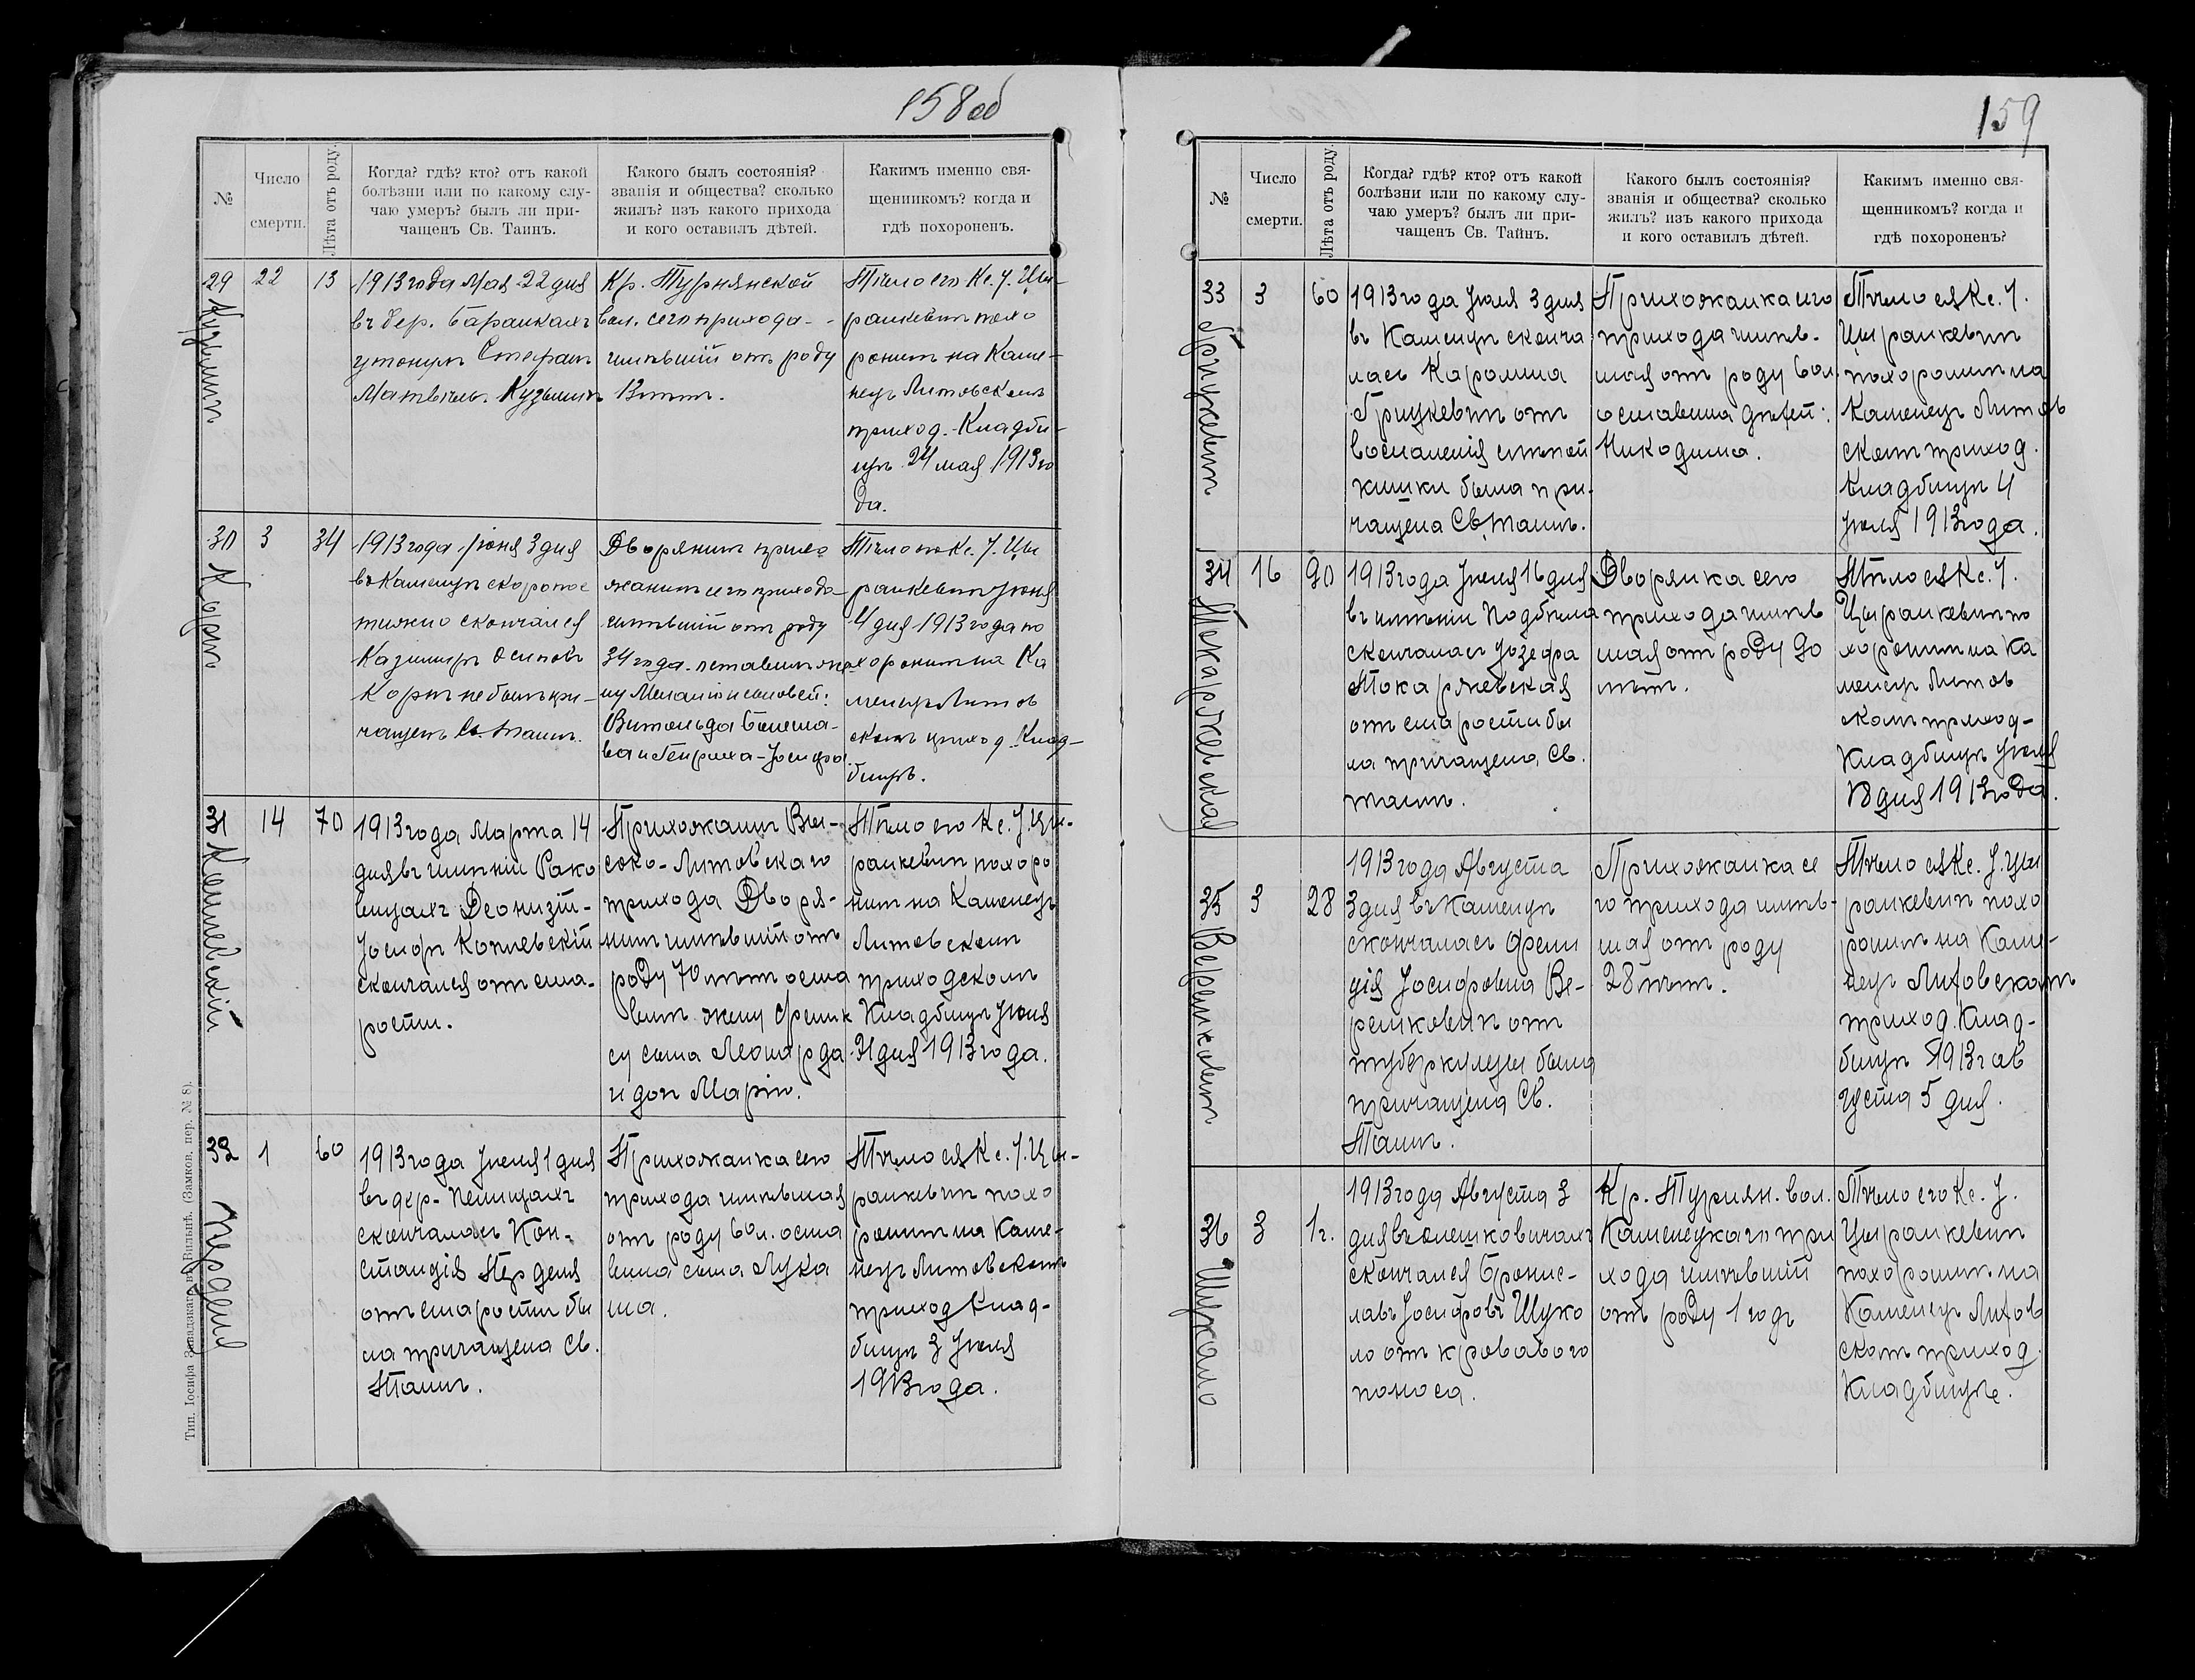 158об
№
Число смерти.
Лѣта отъ роду.
Когда? гдѣ? кто? отъ какой
болѣзни или по какому слу-
чаю умеръ? былъ ли при-
чащенъ Св. Таинъ.
Какого былъ состоянія?
званія и общества? сколько
жилъ? изъ какого прихода
и кого оставилъ дѣтей.
Какимъ именно свя-
щенникомъ? когда и
гдѣ похороненъ.
29 Кузьмичъ
22
13
1913 года Мая 22 дня
въ дер. Баранкахъ
утонулъ Стефанъ
Матвѣевъ Кузьмичъ
Кр. Турнянской
вол. сего прихода
жившій отъ роду
13 лѣтъ.
Тѣло его Кс. І. Цы-
ранкевичъ похо
ронилъ на Каме-
нецъ Литовскомъ
приход. Кладби-
щѣ 24 мая 1913 го
да.
30 Коржъ
3
34
1913 года Іюня 3 дня
въ Каменцѣ скоропос
тижно скончался
Казимиръ Осиповъ
Коржъ не былъ при-
чащенъ Св. Таинъ.
Дворянинъ прихо
жанинъ сего прихода
жившій отъ роду
34 года оставилъ же
ну Меланію и сыновей:
Витольда Болесла-
ва и Генриха-Іосифа
Тѣло Кс. І. Цы
ранкевичъ Іюня
4 дня 1913 года по
хоронилъ на Ка
менецъ Литов
скомъ приход. Клад-
бищѣ.
31 Копчевскій
14
70
1913 года Марта 14
дня въ имѣніи Рако
вицахъ Деонизій-
Іосифъ Копчевскій
скончался отъ ста-
рости.
Прихожанинъ Вы-
соко-Литовскаго
прихода Дворя-
нинъ жившій отъ
роду 70 лѣтъ оста
вилъ жену
сына Леонарда
и доч Марію.
Тѣло его Кс. І. Цы-
ранкевичъ похоро
нилъ на Каменецъ
Литовскомъ
приходскомъ
Кладбищѣ Іюня
дня 1913 года.
32
1
60
1913 года Іюля 1 дня
въ дер.
скончалась Кон-
станція
отъ старости бы
ла причащена Св.
Таинъ.
Прихожанка сего
прихода жившая
отъ роду 60 л. оста
вила сына Лука
ша.
Тѣло ея Кс. І. Цы-
ранкевичъ похо
ронилъ на Каме-
нецъ Литовскомъ
приход Клад-
бищѣ 3 Іюля
1913 года.
Тип. Іосифа Завадзкаго въ Вильнѣ. (Замков. пер. № 8).
159
№
Число смерти.
Лѣта отъ роду
Когда? гдѣ? кто? отъ какой
болѣзни или по какому слу-
чаю умеръ? былъ ли при-
чащенъ Св. Тайнъ.
Какого былъ состоянія?
званія и общества? сколько
жилъ? изъ какого прихода
и кого оставилъ дѣтей.
Какимъ именно свя-
щенникомъ? когда и
гдѣ похороненъ?
33 Грицкевичъ
3
60
1913 года Іюля 3 дня
въ Каменцѣ сконча
лась Каролина
Грицкевичъ отъ
воспаленія слѣпой
кишки была при-
чащена Св. Таинъ.
Прихожанка сего
прихода жив-
шая отъ роду 60 л.
оставила дѣтей:
Никодима.
Тѣло ея Кс. І.
Цыранкевичъ
похоронилъ на
Каменецъ Литов
скомъ приход.
Кладбищѣ 4
Іюля 1913 года.
34 Токаржевская
16
90
1913 года Іюля 16 дня
въ имѣніи Подбѣла
скончалась Іозефа
Токаржевская
отъ старости бы
ла причащена Св.
таинъ.
Дворянка сего
прихода жив
шая отъ роду 90
лѣтъ.
Тѣло ея Кс. І.
Цыранкевичъ по
хоронилъ на Ка
менецъ Литов
скомъ приход-
Кладбищѣ Іюля
18 дня 1913 года.
35 Веренковичъ
3
28
1913 года Августа
3 дня въ Каменцѣ
скончалась Фели
ція Іосифовна Ве-
ренковичъ отъ
туберкулезы была
причащена Св.
Таинъ.
Прихожанка се
го прихода жив-
шая отъ роду
28 лѣтъ.
Тѣло ея Кс. І. Цы
ранкевичъ похо
ронилъ на Каме-
нецъ Литовскомъ
приход. Клад-
бищѣ 1913 г ав
густа 5 дня.
36 Шукало
3
1г.
1913 года Августа 3
дня въ Олешковичахъ
скончался Бронис-
лавъ Іосифовъ Шука
ло отъ кроваваго
поноса.
Кр. Турнян. вол.
Каменецкаго при
хода жившій
отъ роду 1 годъ
Тѣло его Кс. І.
Цыранкевичъ
похоронилъ на
Каменецъ Литов
скомъ приход.
Кладбищѣ.